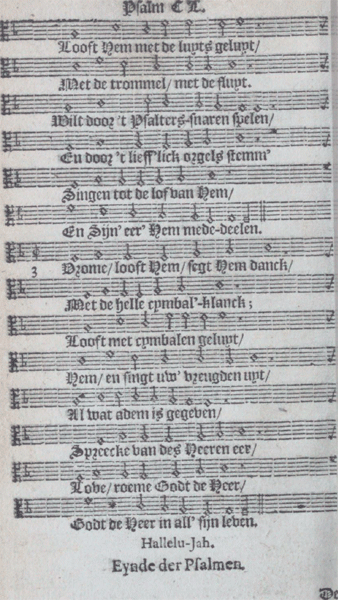 Psalm CL.
Looft Hem met de luyts geluyt/
Met de trommel/ met de fluyt.
Wilt door 't Psalters-snaren spelen/
En door 't lieff'lick orgels stemm'
Singen tot de lof van Hem/
En Sijn' eer' Hem mede-deelen.
3 Vrome/ looft Hem/ segt Hem danck/
Met de helle cymbal'-klanck;
Looft met cymbalen geluyt/
Hem/ en singt uw' vreugden uyt/
Al wat adem is gegeven/
Spreecke van des Heeren eer/
Love/ roeme Godt de Heer/
Godt de Heer in all' sijn leven.
Hallelu-Jah.
Eynde der Psalmen.